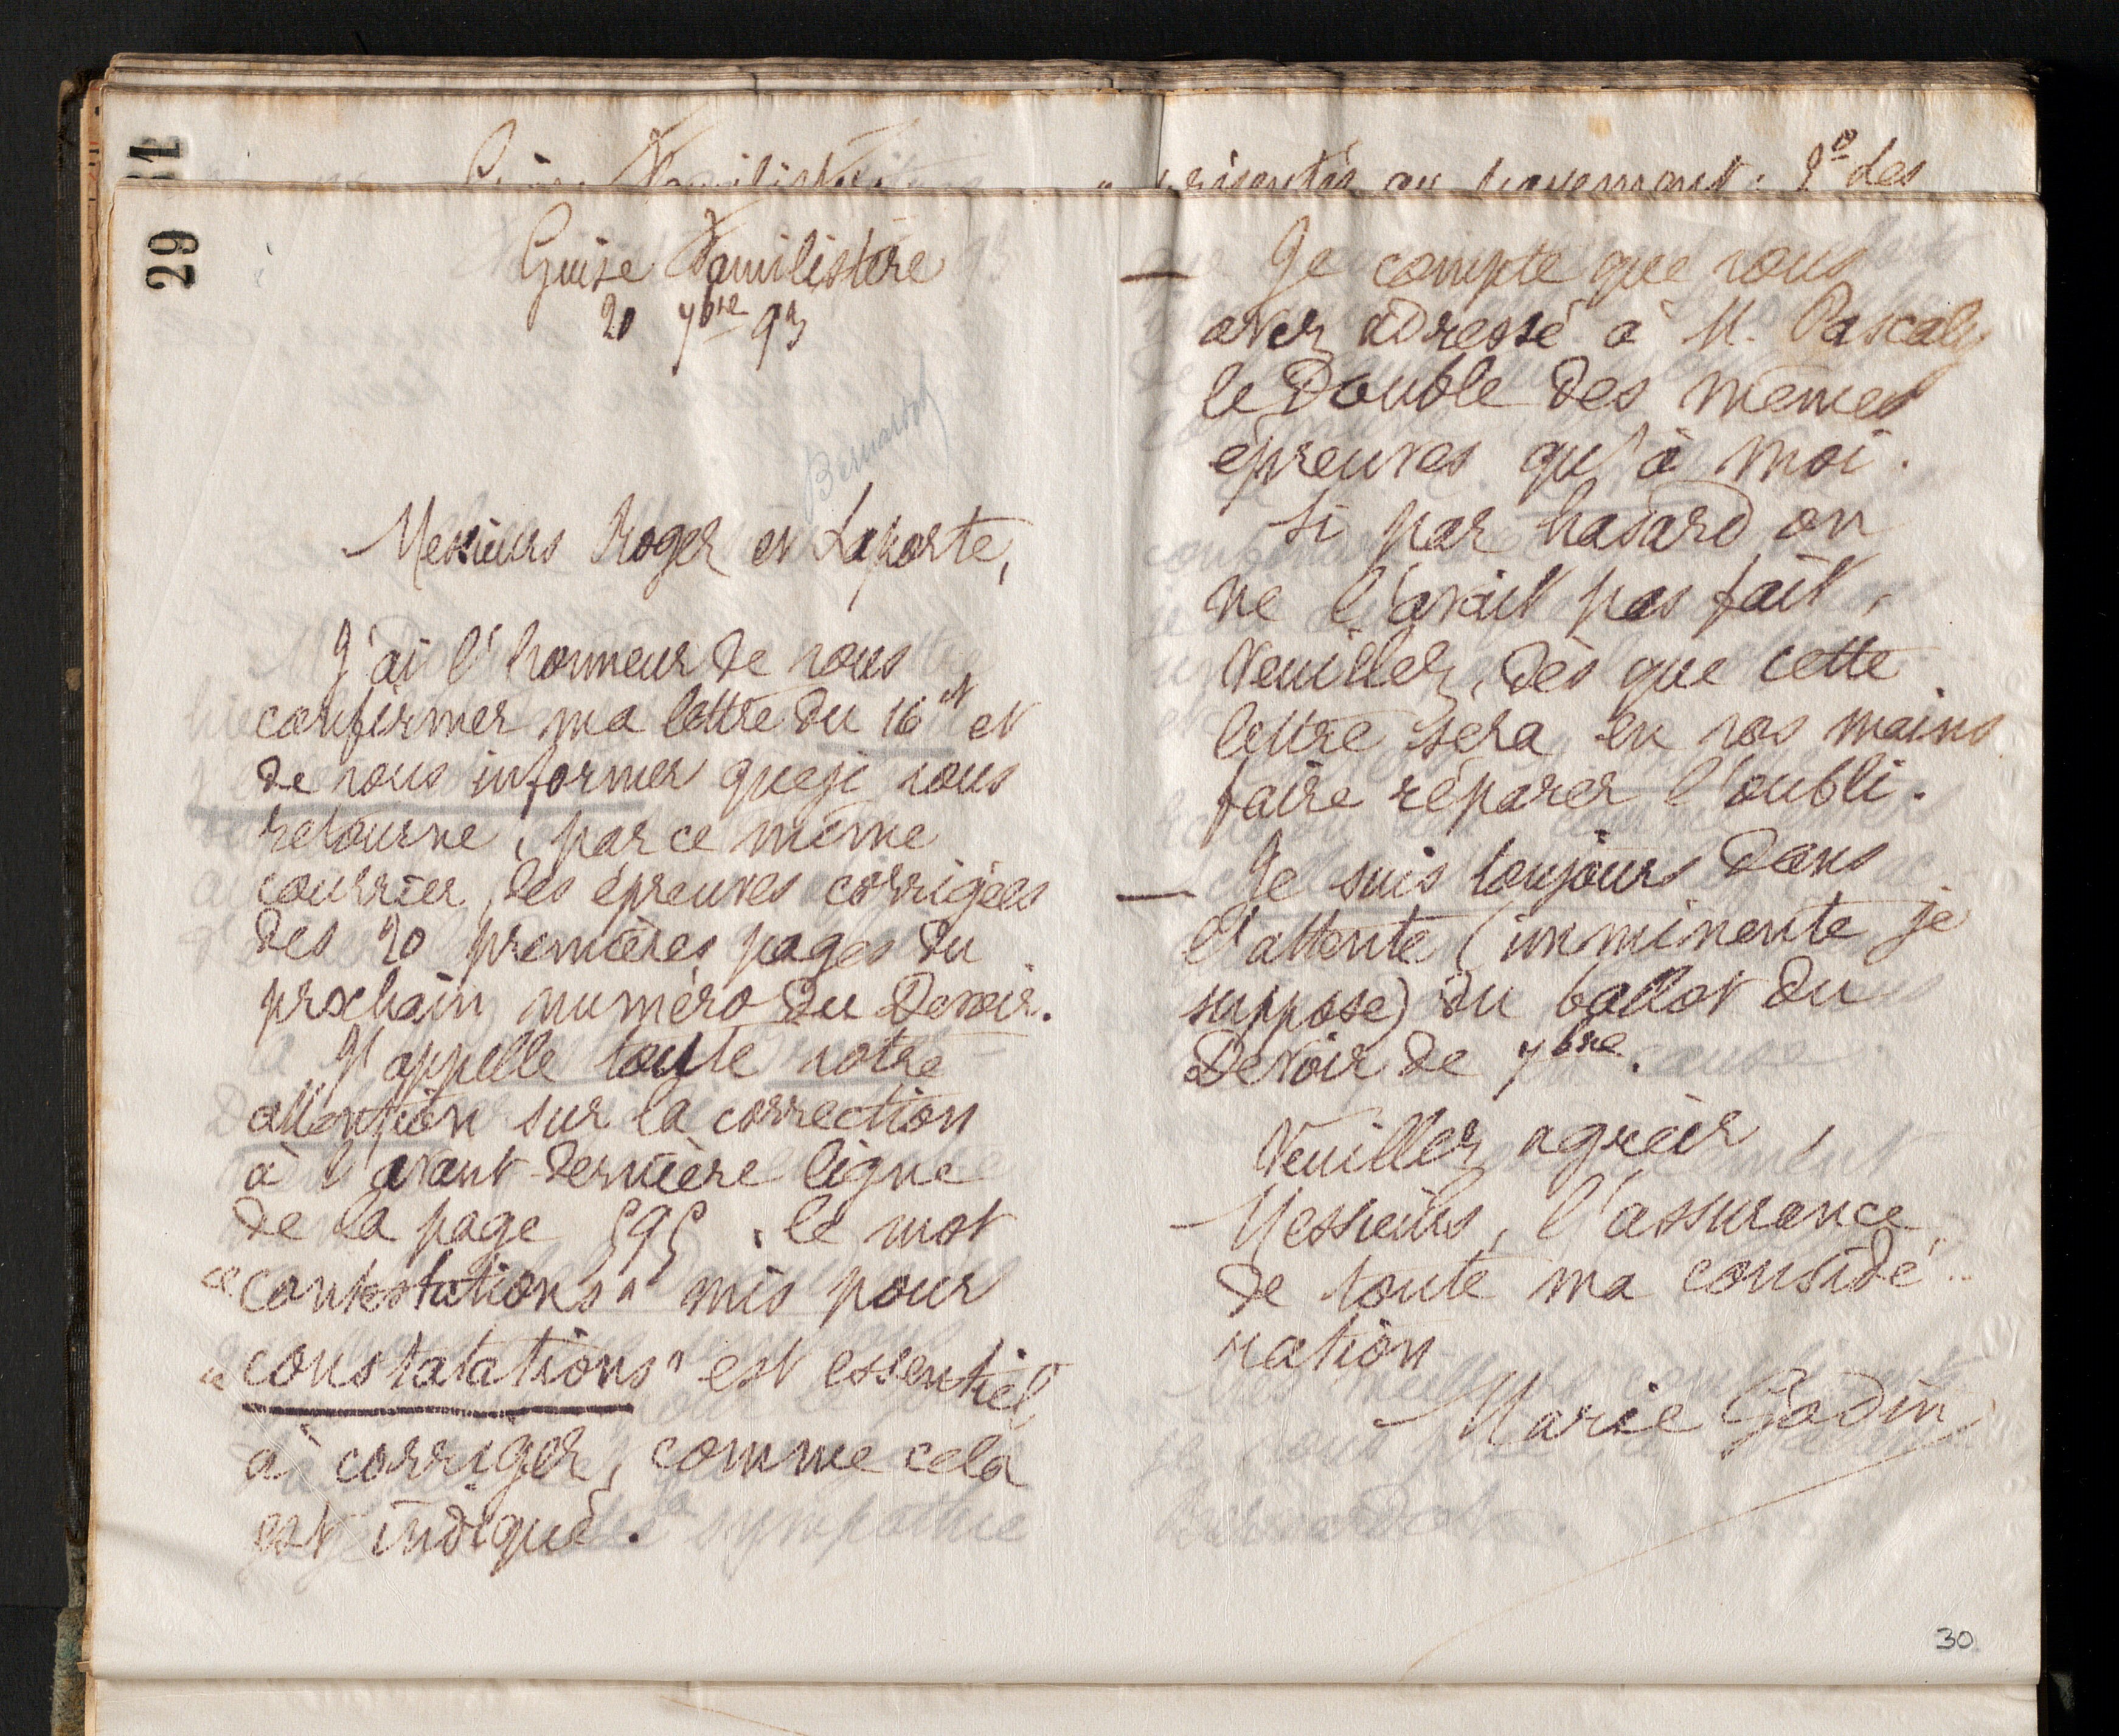 29
Guise Familistère
20 7bre 93
Bernardot
Messieurs Roger et Laporte,
J'ai l'honneur de vous
confirmer ma lettre du 16 ct et
de vous informer que je vous
retourne, par ce même
courrier, les épreuves corrigées
des 20 premières pages du
prochain numéro du Devoir.
J'appelle toute votre
attention sur la correction
à l'avant-dernière ligne
de la page 595, le mot
"contestations" mis pour
"constatations" est essentiel
à corriger, comme cela
est indiqué.
— Je compte que vous
avez adressé à M. Pascaly
le double des mêmes
épreuves qu'à moi.
Si par hasard on
ne l'avait pas fait,
veuillez, dès que cette
lettre sera en vos mains
faire réparer l'oubli.
— Je suis toujours dans
l'attente (imminente je
suppose) du ballot du
Devoir de 7bre.
Veuillez agréer,
Messieurs, l'assurance
de toute ma considé-
ration
Marie Godin
30